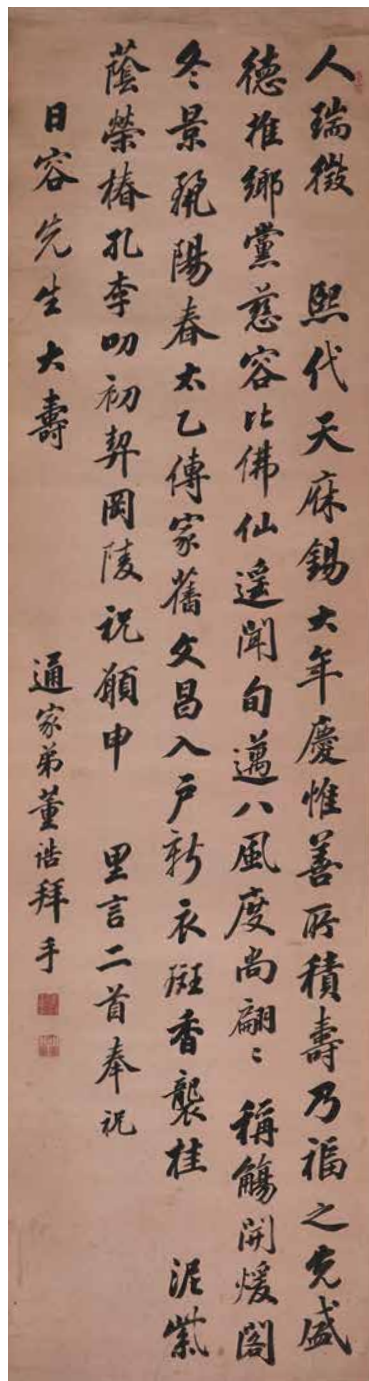 人瑞徵 熙代天庥錫大年慶惟善所積壽乃福之先盛
德推鄉黨慈容比佛仙遥聞旬邁八風度尚翩〻 稱觴開煖閣
冬景陽春太乙傳家舊文昌入戶新衣斑香襲桂 泥紫
蔭榮椿孔李叨初契岡陵祝願申 里言二首奉祝
日容先生大壽 通家弟董誥拜手